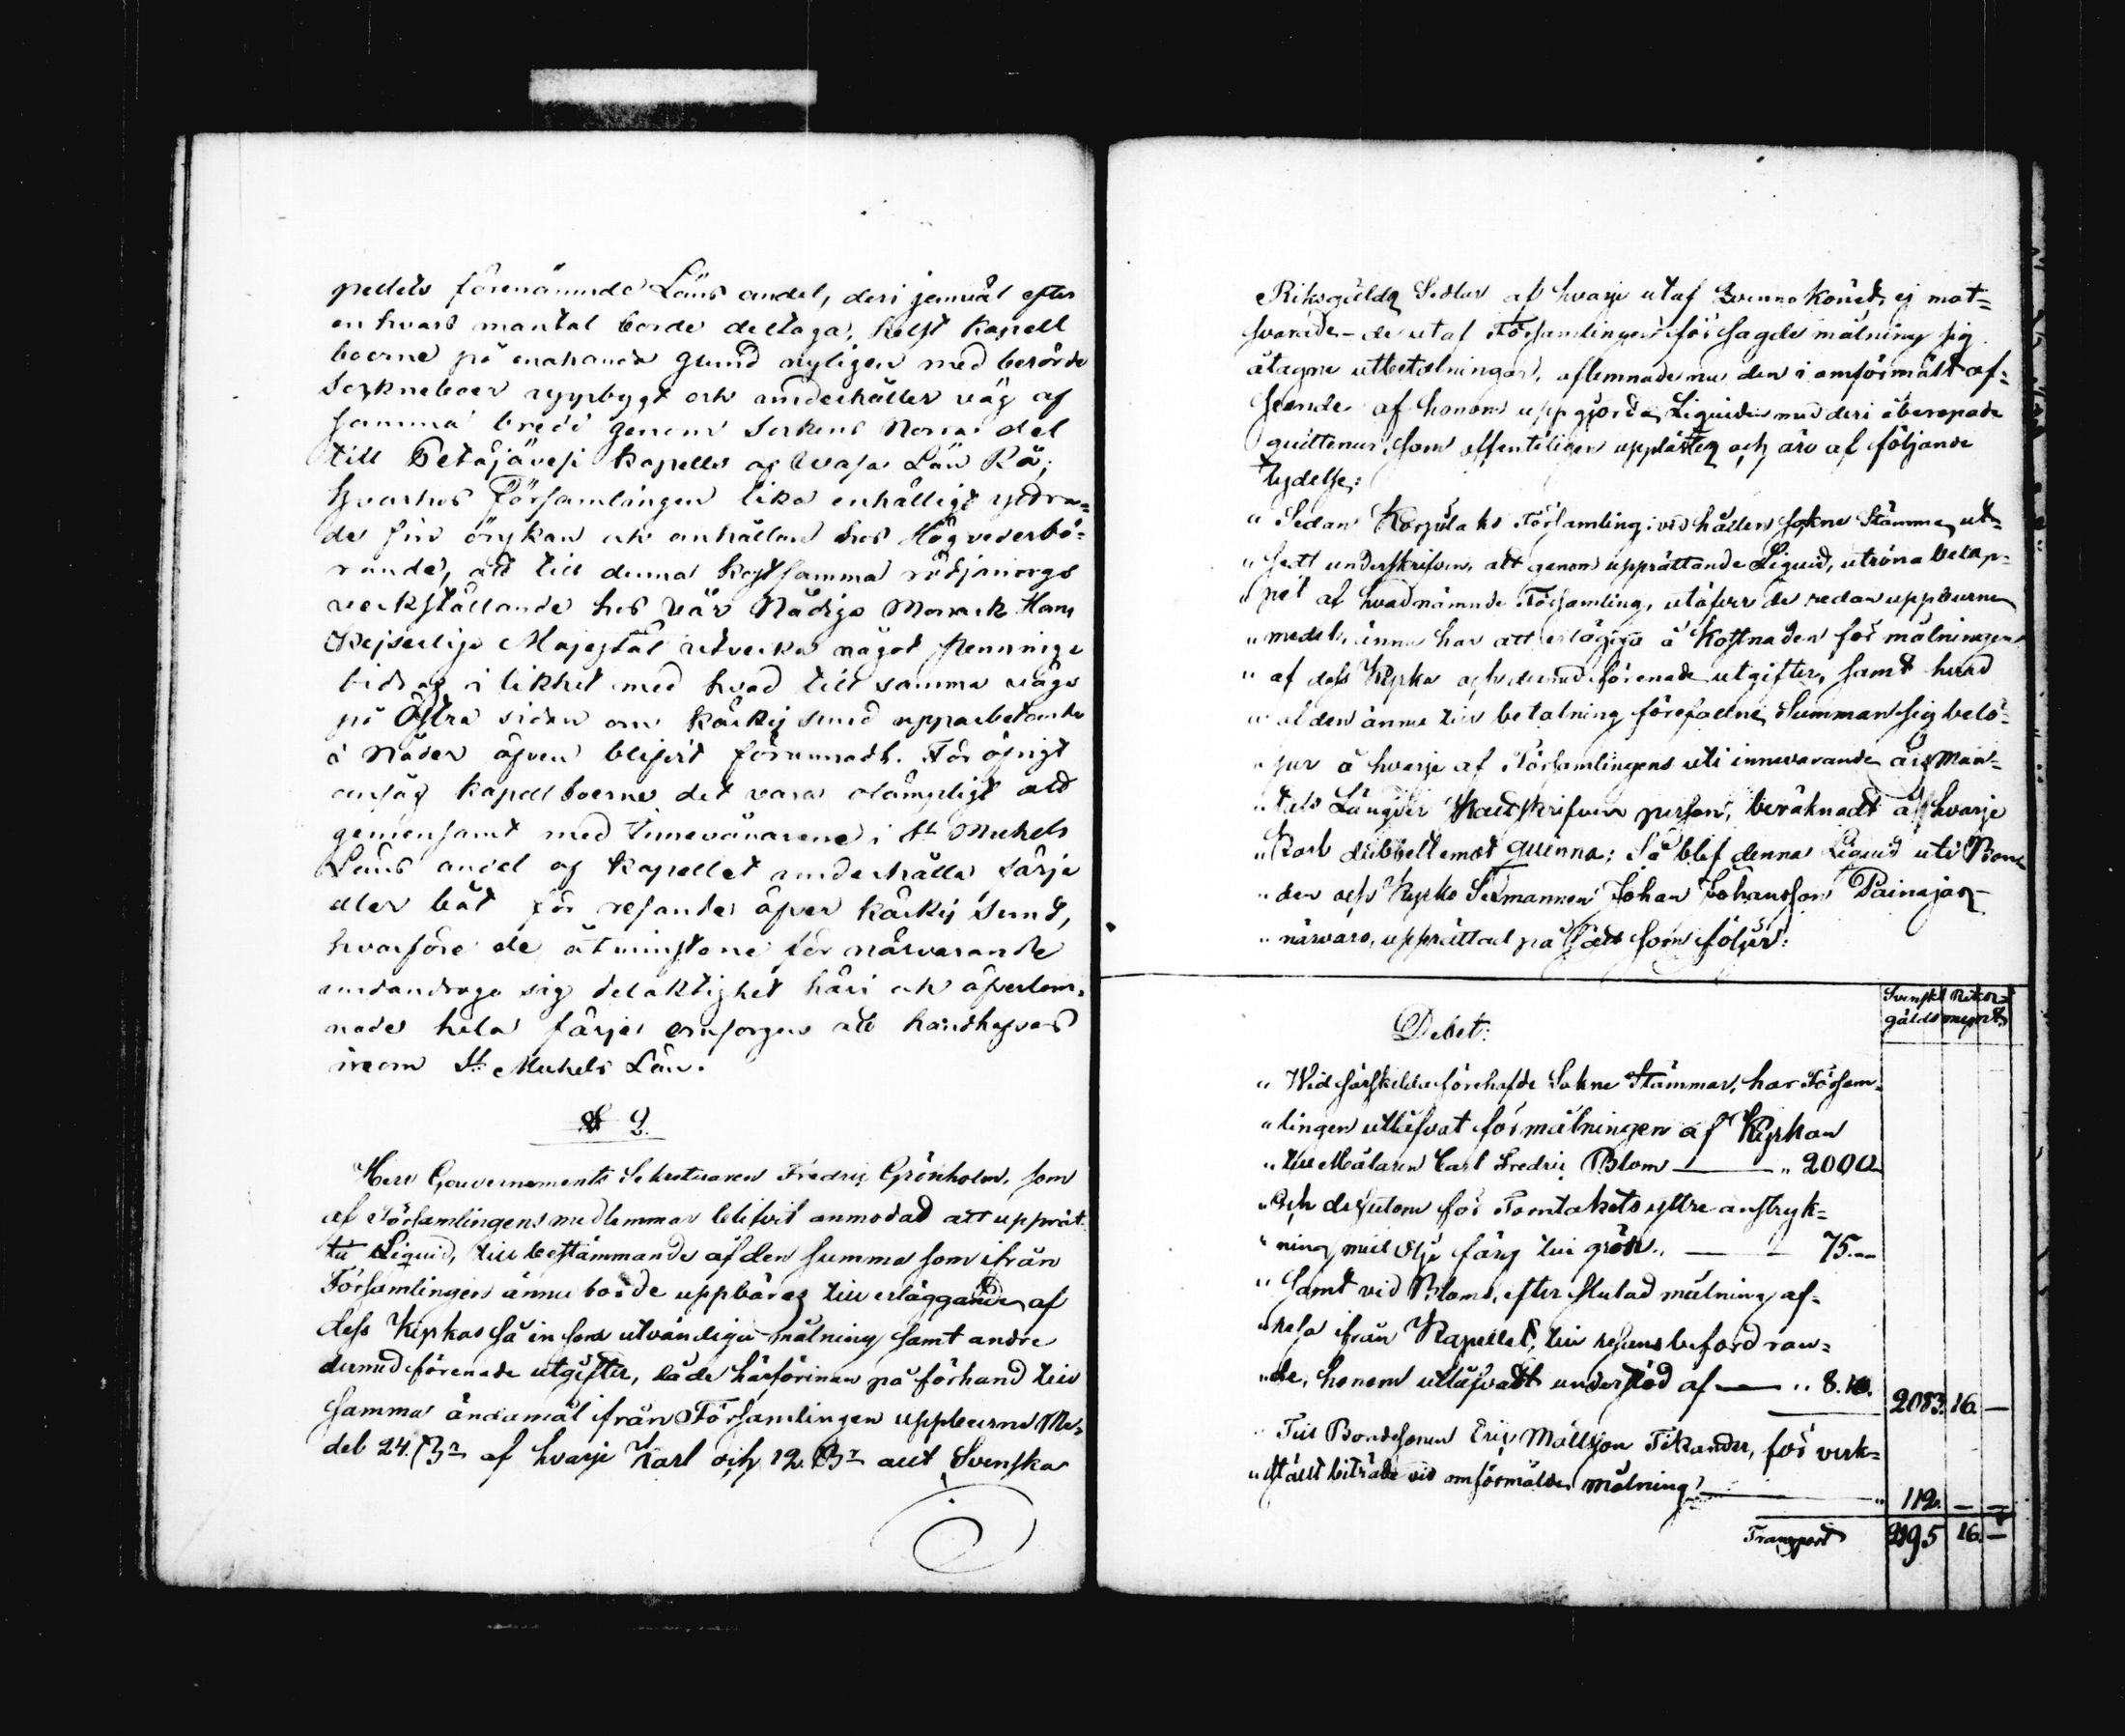 pellets förenämnde Läns andel, deri jemväl efter
en hvars mantal borde deltaga, helst Kapell
boerne på enahanda grund nyligen med berörde
Sockneboer uppbygt och underhåller väg af
samma bredd genom Sockens Norra del
till Petäjävesi Kapells af Wasa Län Rå;
hvarhos Församlingen lika enhälligt yttra-
de sin önskan och anhållan hos Högvederbö-
rande, att till denna kostsamma rödjnings
verkställande hos vår Nådiga Monark Hans
Kejserliga Majestät utverka något pennings
bidrag, i likhet med hvad till samma vägs
på Östra sidan om Kärkis sund upparbetande
i Nåder äfven blifvit förunnadt. För öfrigt
ansåg Kapellboerne det vara olämpligt att
gemensamt med innevånarene i St Michels
Läns andel af Kapellet underhålla färja
eller båt för resande öfver Kärkis Sund,
hvarföre de åtminstone för närvarande
undandrogo sig delaktighet häri och öfverlem-
nade hela färje omsorgen att handhafvas
inom St Michels Län.
§ 2.
Herr Gouvernements Sekreteraren Fredric Grönholm, som
af Församlingens medlemmar blifvit anmodad att upprät-
ta Liquid, till bestämmande af den summa som ifrån
Församlingen ännu borde uppbäras till erläggande af
dess Kyrkas så in som utvändiga målning samt andre
dermed förenade utgifter, både härförinnan på förhand till
samma ändamål ifrån Församlingen uppburne Me-
del 24. ß af hvarje Karl och 12. ß allt Svenska
Riksgälds Sedlar af hvarje utaf Qvinno Könet, ej mot-
svarade de utaf Församlingen för sagde målning sig
åtagne utbetalningar, aflemnade nu den i omförmält af-
seende af honom uppgjorda Liquiden med deri åberopade
quittencer, som offenteligen upplästes och äro af följande
lydelse:
" Sedan Korpilaks Församling vid hållen Sokne Stämma, ut-
" sett underskrifven, att genom upprättande Liquid, utröna belop-
" pet af hvad nämnde Församling, utöfver de redan uppburne
" medel, ännu har att erlägga å Kostnaden för målningen
" af dess Kyrka och dermed förenade utgifter, samt hvad
" af den ännu till betalning förefallne Summan sig belö-
" per å hvarje af Församlingens uti innevarande års Man-
" tals Längder skattskrifven person, beräknadt af hvarje
" Karl dubbelt emot quinna; Så blef denna Liquid uti Bon-
" den och Kyrko Sexmannen Johan Johansson Painajas
" närvaro, upprättad på sätt som följer:
Svenskt Riks-
gälds mynt
Debet:
" Wid särskilde förehafde Sokne Stämmor, har Försam-
" lingen utlåfvat för målningen af Kyrkan
" till Målaren Carl Fredric Blom — " 2000.
" Och dessutom för Tomtakets yttre anstryk-
" ning med Olje färg till grön " — 75. —
" Samt vid Bloms, efter slutad målning af-
" resa ifrån Kapellet, till resans befordran-
" de, honom utlåfvadt understöd af — " 8.16. 2083. 16. —
" Till Bondesonen Eric Mattsson Tikander, för verk-
" stäldt biträde vid omförmälde målning — " 112. — —
Transport 2195 16. —